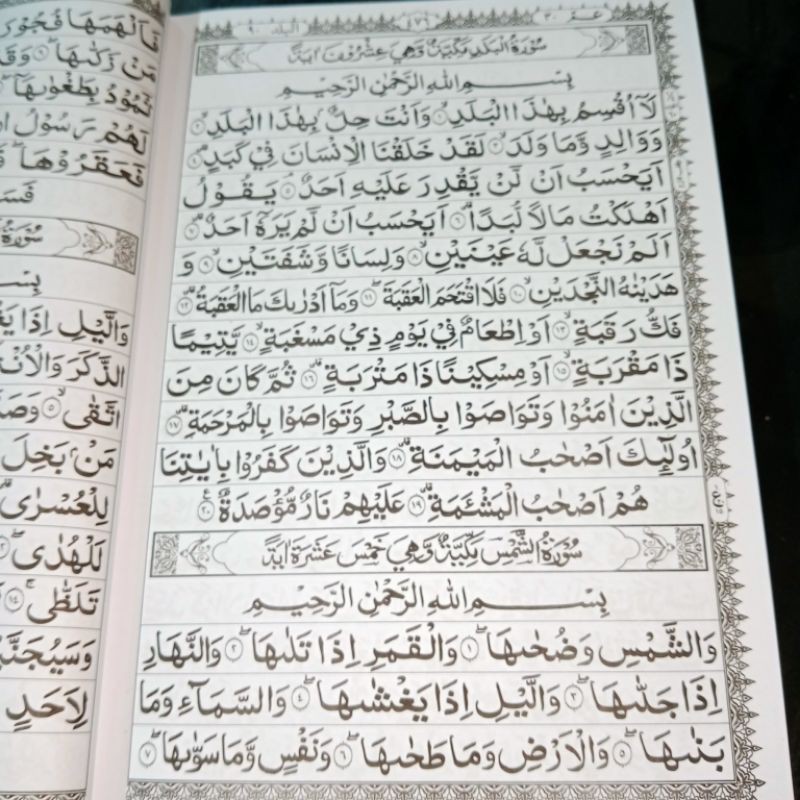 عم ٣٠
البلد ٩٠
سُوْرَةُ الْبَلَدِ مَكِّيَّةٌ وَّهِيَ عِشْرُوْنَ اٰيَةً
بِسْمِ اللّٰهِ الرَّحْمٰنِ الرَّحِيْمِ
لَآ اُقْسِمُ بِهٰذَا الْبَلَدِ ۙ۱ وَاَنْتَ حِلٌّۢ بِهٰذَا الْبَلَدِ ۙ۲
وَوَالِدٍ وَّمَا وَلَدَ ۙ۳ لَقَدْ خَلَقْنَا الْاِنْسَانَ فِيْ كَبَدٍ ۗ۴
اَيَحْسَبُ اَنْ لَّنْ يَّقْدِرَ عَلَيْهِ اَحَدٌ ۘ۵ يَقُوْلُ
اَهْلَكْتُ مَالًا لُّبَدًا ۗ۶ اَيَحْسَبُ اَنْ لَّمْ يَرَهٗٓ اَحَدٌ ۗ۷
اَلَمْ نَجْعَلْ لَّهٗ عَيْنَيْنِ ۙ۸ وَلِسَانًا وَّشَفَتَيْنِ ۙ۹ وَ
هَدَيْنٰهُ النَّجْدَيْنِ ۙ۱۰ فَلَا اقْتَحَمَ الْعَقَبَةَ ۖ۱۱ وَمَآ اَدْرٰىكَ مَا الْعَقَبَةُ ۗ۱۲
فَكُّ رَقَبَةٍ ۙ۱۳ اَوْ اِطْعَامٌ فِيْ يَوْمٍ ذِيْ مَسْغَبَةٍ ۙ۱۴ يَّتِيْمًا
ذَا مَقْرَبَةٍ ۙ۱۵ اَوْ مِسْكِيْنًا ذَا مَتْرَبَةٍ ۗ۱۶ ثُمَّ كَانَ مِنَ
الَّذِيْنَ اٰمَنُوْا وَتَوَاصَوْا بِالصَّبْرِ وَتَوَاصَوْا بِالْمَرْحَمَةِ ۗ۱۷
اُولٰٓئِكَ اَصْحٰبُ الْمَيْمَنَةِ ۗ۱۸ وَالَّذِيْنَ كَفَرُوْا بِاٰيٰتِنَا
هُمْ اَصْحٰبُ الْمَشْـَٔمَةِ ۗ۱۹ عَلَيْهِمْ نَارٌ مُّؤْصَدَةٌ ۲۰
سُوْرَةُ الشَّمْسِ مَكِّيَّةٌ وَّهِيَ خَمْسَ عَشَرَةَ اٰيَةً
بِسْمِ اللّٰهِ الرَّحْمٰنِ الرَّحِيْمِ
وَالشَّمْسِ وَضُحٰىهَا ۖ۱ وَالْقَمَرِ اِذَا تَلٰىهَا ۖ۲ وَالنَّهَارِ
اِذَا جَلّٰىهَا ۖ۳ وَالَّيْلِ اِذَا يَغْشٰىهَا ۖ۴ وَالسَّمَآءِ وَمَا
بَنٰىهَا ۖ۵ وَالْاَرْضِ وَمَا طَحٰىهَا ۖ۶ وَنَفْسٍ وَّمَا سَوّٰىهَا ۖ۷
فَاَلْهَمَهَا فُجُوْرَ
مَنْ زَكّٰىهَا ۖ۹ وَقَ
ثَمُوْدُ بِطَغْوٰىهَا
لَهُمْ رَسُوْلُ
فَعَقَرُوْهَا
بِسْ
وَالَّيْلِ اِذَا يَغْ
الذَّكَرَ وَالْاُنْ
اتَّقٰى ۙ۵ وَصَ
مَنْۢ بَخِلَ
لِلْعُسْرٰى
لَلْهُدٰى
تَلَظّٰى ۱۴
وَسَيُجَنَّ
لِاَحَدٍ